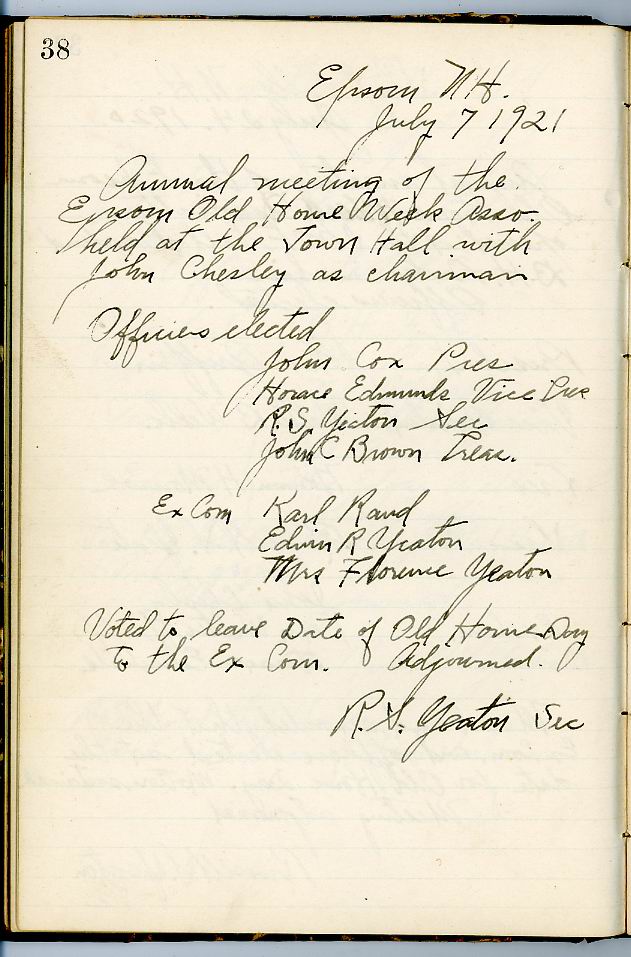 38
Epsom N H.
July 7 1921
Annual meeting of the
Epsom Old Home Week Asso.
held at the Town Hall with
John Chesley as chairman
Officers elected
John Cox Pres
Horace Edmunds Vice Pres
R. S. Yeaton Sec
John C Brown Treas.
Ex Com Karl Rand
Edwin R Yeaton
Mrs Florence Yeaton
Voted to leave Date of Old Home Day
to the Ex Com. Adjourned.
R. S. Yeaton Sec